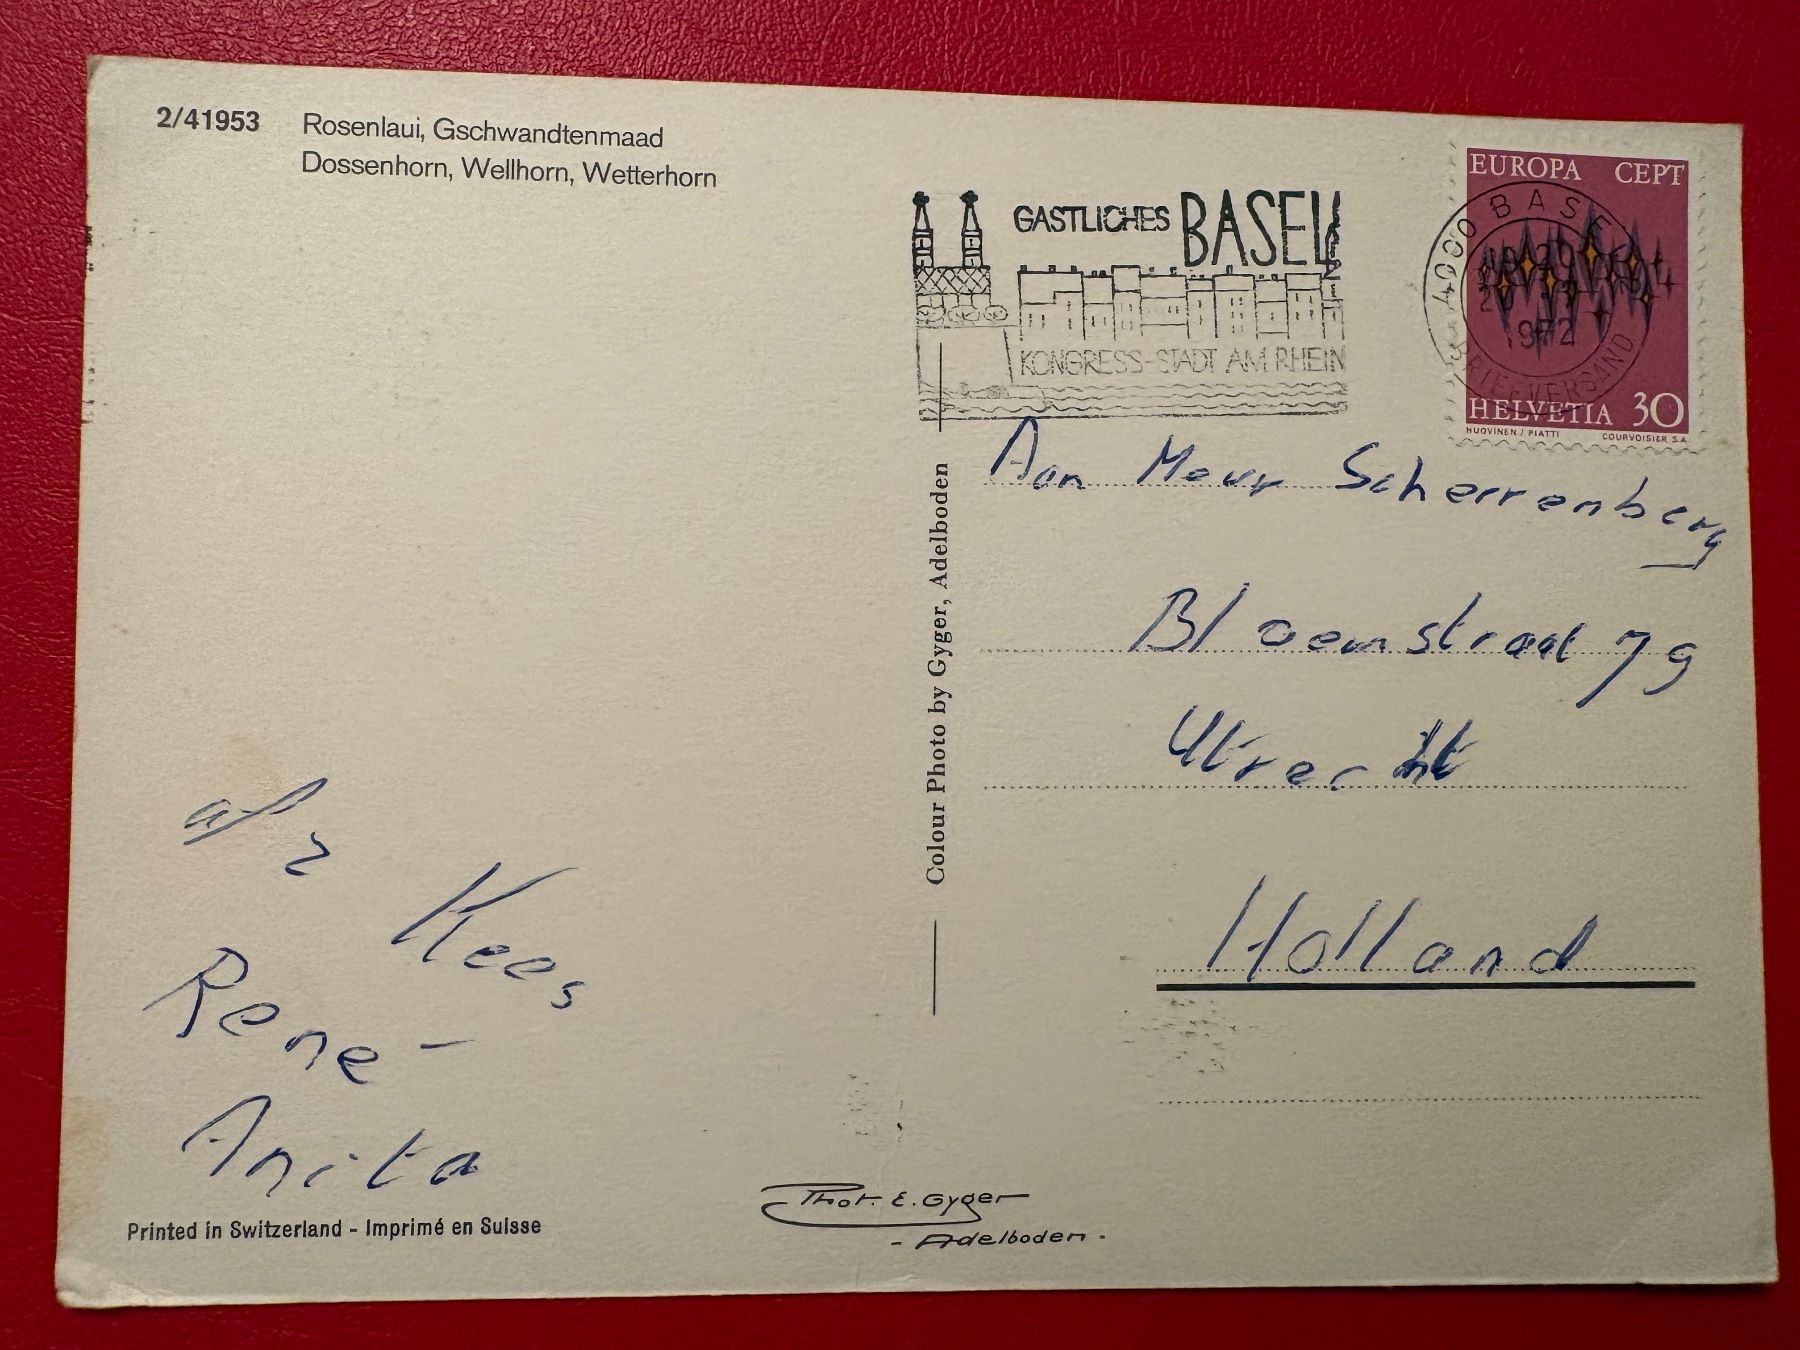 2/41953 Rosenlaui, Gschwandtenmaad
Dossenhorn, Wellhorn, Wetterhorn
GASTLICHES BASEL
KONGRESS-STADT AM RHEIN
4000 BASEL
1972
BRIEFVERSAND
EUROPA CEPT
HELVETIA 30
HUOVINEN / PIATTI COURVOISIER S.A.
Colour Photo by Gyger, Adelboden
Aan Meur Scherrenberg
Bloemstraat 79
Utrecht
Holland
afz
Kees
René
Anita
Printed in Switzerland - Imprimé en Suisse
Phot. E. Gyger
- Adelboden -